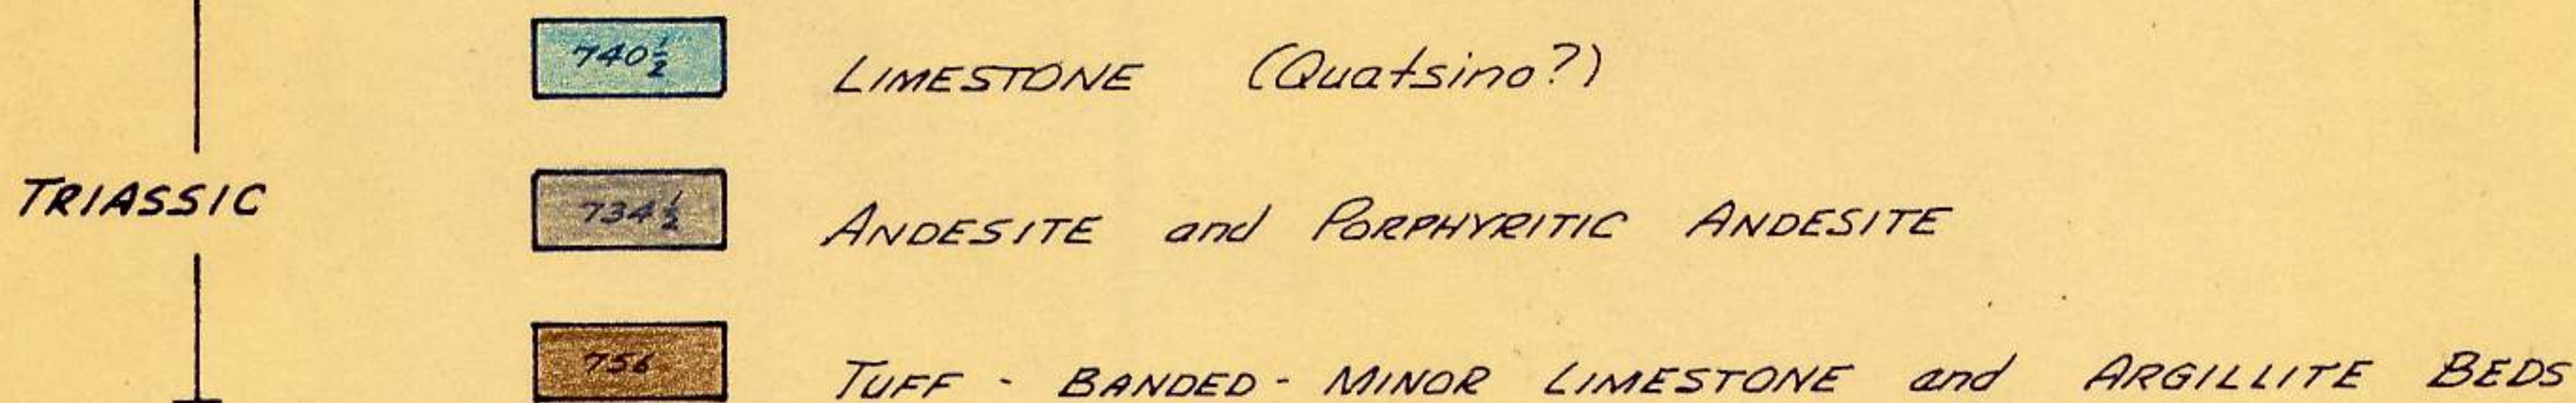 740½ LIMESTONE (Quatsino?)
TRIASSIC
734½ ANDESITE and PORPHYRITIC ANDESITE
756 TUFF - BANDED - MINOR LIMESTONE and ARGILLITE BEDS